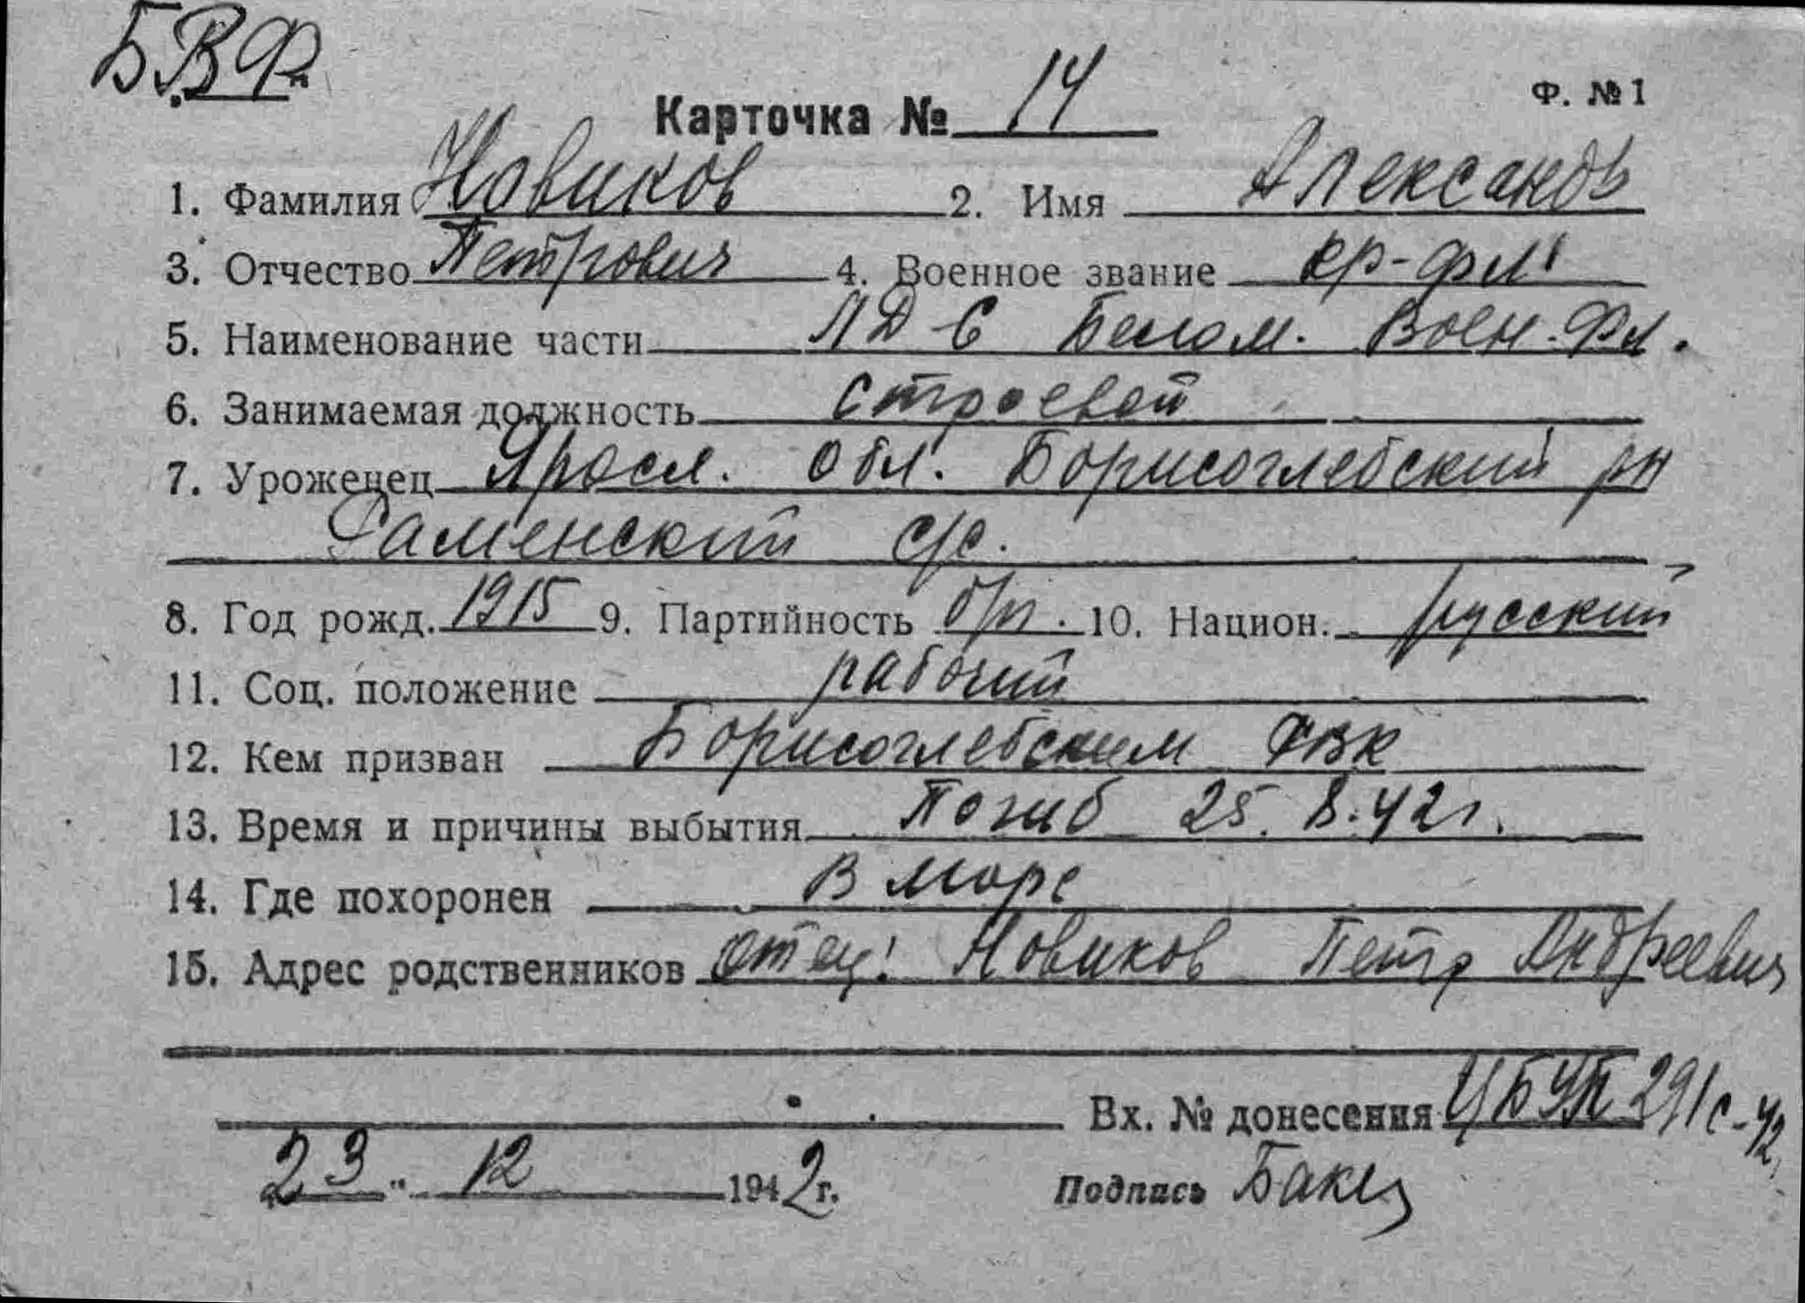 БВФ
Карточка № 14
Ф. №1
1. Фамилия Новиков 2. Имя Александр
3. Отчество Петрович 4. Военное звание кр-фл
5. Наименование части ЛД-6 Белом. Воен. Фл.
6. Занимаемая должность строевой
7. Уроженец Яросл. обл. Борисоглебский рн
Раменский с/с.
8. Год рожд. 1915 9. Партийность б/п. 10. Национ. русский
11. Соц. положение рабочий
12. Кем призван Борисоглебским РВК
13. Время и причины выбытия Погиб 25.8.42г.
14. Где похоронен в море
15. Адрес родственников отец: Новиков Петр Андреевич
Вх. № донесения ЦБУП 291с-42
23 " 12 1942г. Подпись